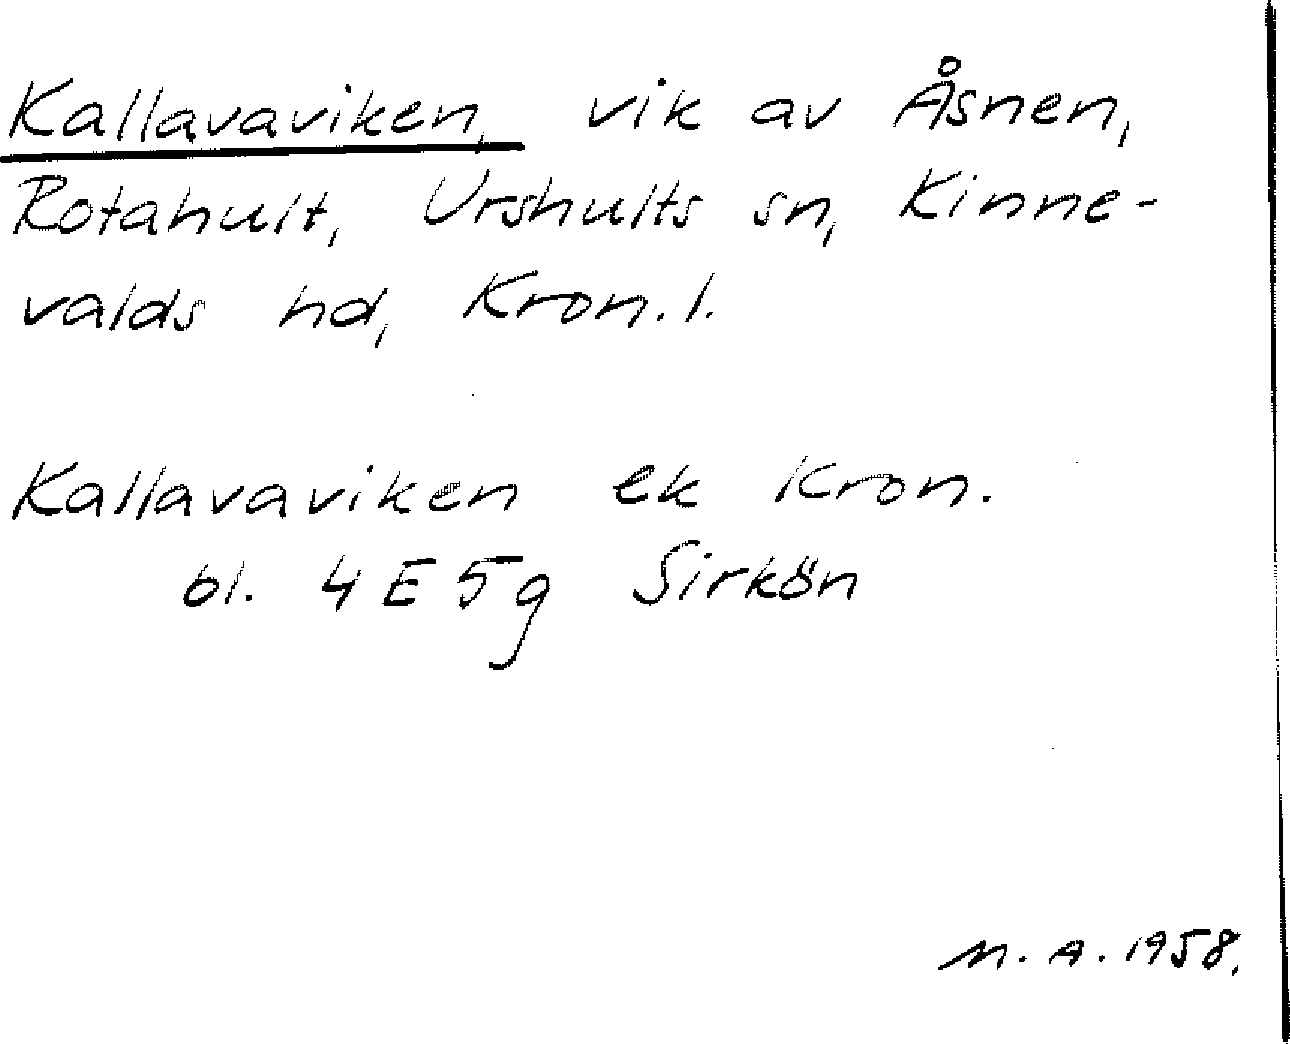 Kallavaviken, vik av Åsnen,
Rotahult, Urshults sn, Kinne-
valds hd, Kron. l.
Kallavaviken ek Kron.
bl. 4 E 5g Sirkön
M. A. 1958.